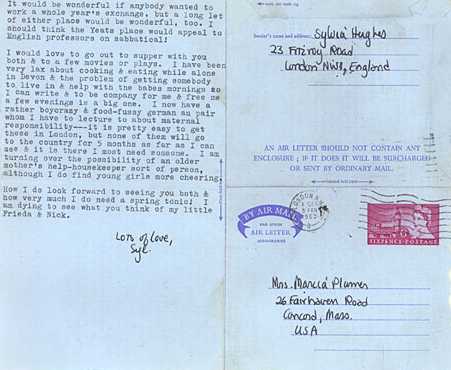 It would be wonderful if anybody wanted to
work a whole year's exchange, but a long let
of either place would be wonderful, too. I
should think the Yeats place would appeal to
English professors on sabbatical!
I would love to go out to supper with you
both & to a few movies or plays. I have been
very lax about cooking & eating while alone
in Devon & the problem of getting somebody
to live in & help with the babes mornings so
I can write & to be company for me & free me
a few evenings is a big one. I now have a
rather boycrazy & food-fussy german au pair
whom I have to lecture about maternal
responsibility---it is pretty easy to get
these in London, but none of them will go
to the country for 5 months as far as I can
see & it is there I most need someone. I am
turning over the possibility of an older
mother's help-housekeeper sort of person,
although I do find young girls more cheering.
How I do look forward to seeing you both &
how very much I do need a spring tonic! I
am dying to see what you think of my little
Frieda & Nick.
Lots of love,
Syl.
Sender's name and address:
Sylvia Hughes
23 Fitzroy Road
London NW1, England
AN AIR LETTER SHOULD NOT CONTAIN ANY
ENCLOSURE ; IF IT DOES IT WILL BE SURCHARGED
OR SENT BY ORDINARY MAIL.
BY AIR MAIL
PAR AVION
AIR LETTER
AEROGRAMME
1963
SIXPENCE POSTAGE
Mrs. Marcia Plumer
26 Fairhaven Road
Concord, Mass.
USA